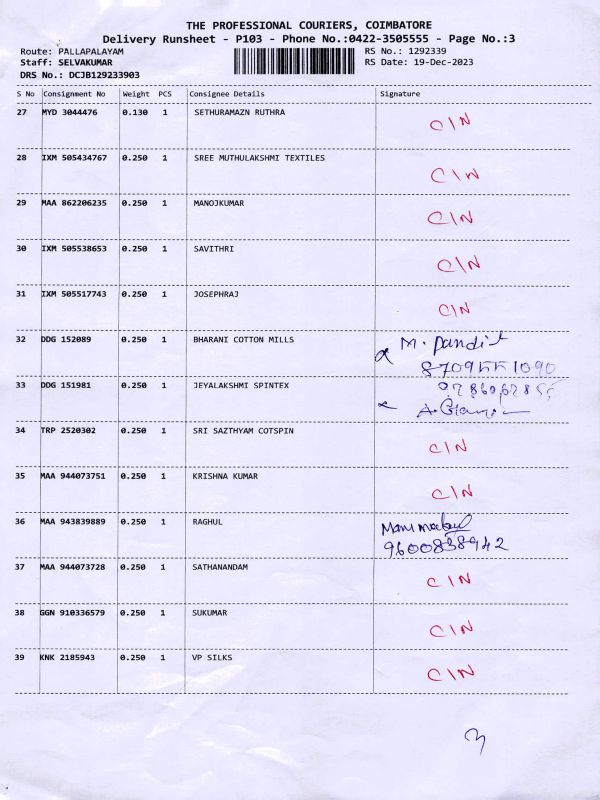 THE PROFESSIONAL COURIERS, COIMBATORE
Delivery Runsheet - P103 - Phone No.:0422-3505555 - Page No.:3
Route: PALLAPALAYAM RS No.: 1292339
Staff: SELVAKUMAR RS Date: 19-Dec-2023
DRS No.: DCJB129233903
S No Consignment No Weight PCS Consignee Details Signature
27 MYD 3044476 0.130 1 SETHURAMAZN RUTHRA C/N
28 IXM 505434767 0.250 1 SREE MUTHULAKSHMI TEXTILES C/N
29 MAA 862206235 0.250 1 MANOJKUMAR C/N
30 IXM 505538653 0.250 1 SAVITHRI C/N
31 IXM 505517743 0.250 1 JOSEPHRAJ C/N
32 DDG 152089 0.250 1 BHARANI COTTON MILLS M. Pandit
33 DDG 151981 0.250 1 JEYALAKSHMI SPINTEX
34 TRP 2520302 0.250 1 SRI SAZTHYAM COTSPIN C/N
35 MAA 944073751 0.250 1 KRISHNA KUMAR C/N
36 MAA 943839889 0.250 1 RAGHUL
9600838942
37 MAA 944073728 0.250 1 SATHANANDAM C/N
38 GGN 910336579 0.250 1 SUKUMAR C/N
39 KNK 2185943 0.250 1 VP SILKS C/N
3